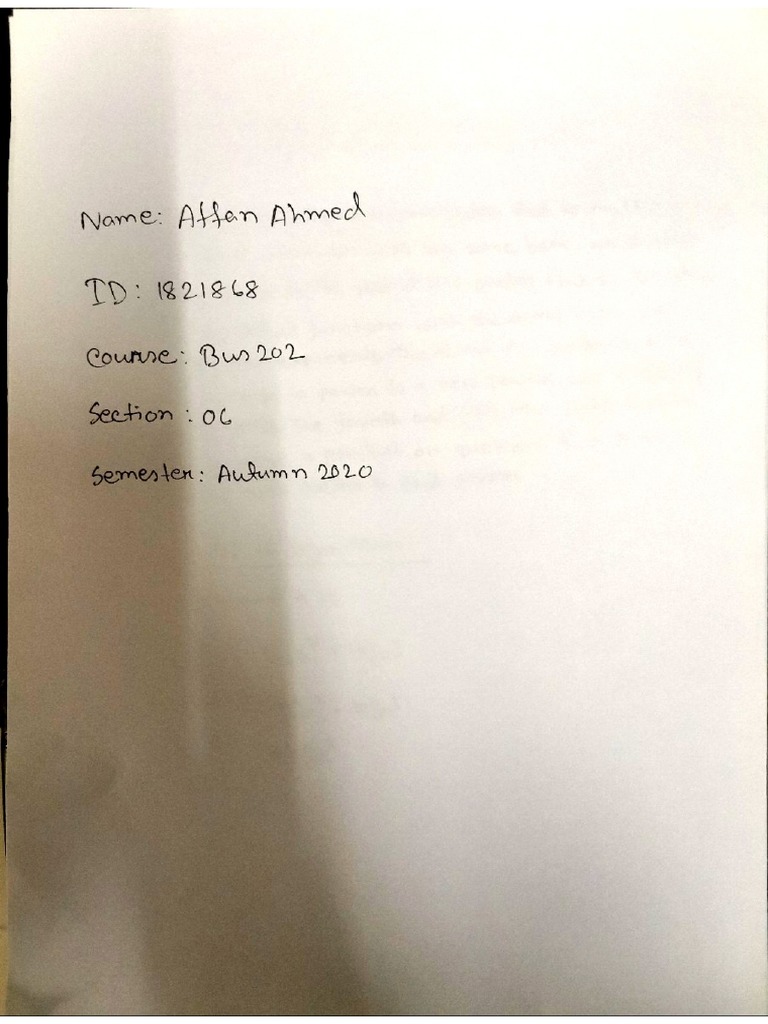 Name: Affan Ahmed
ID: 1821868
Course: Bus 202
Section: 06
Semester: Autumn 2020